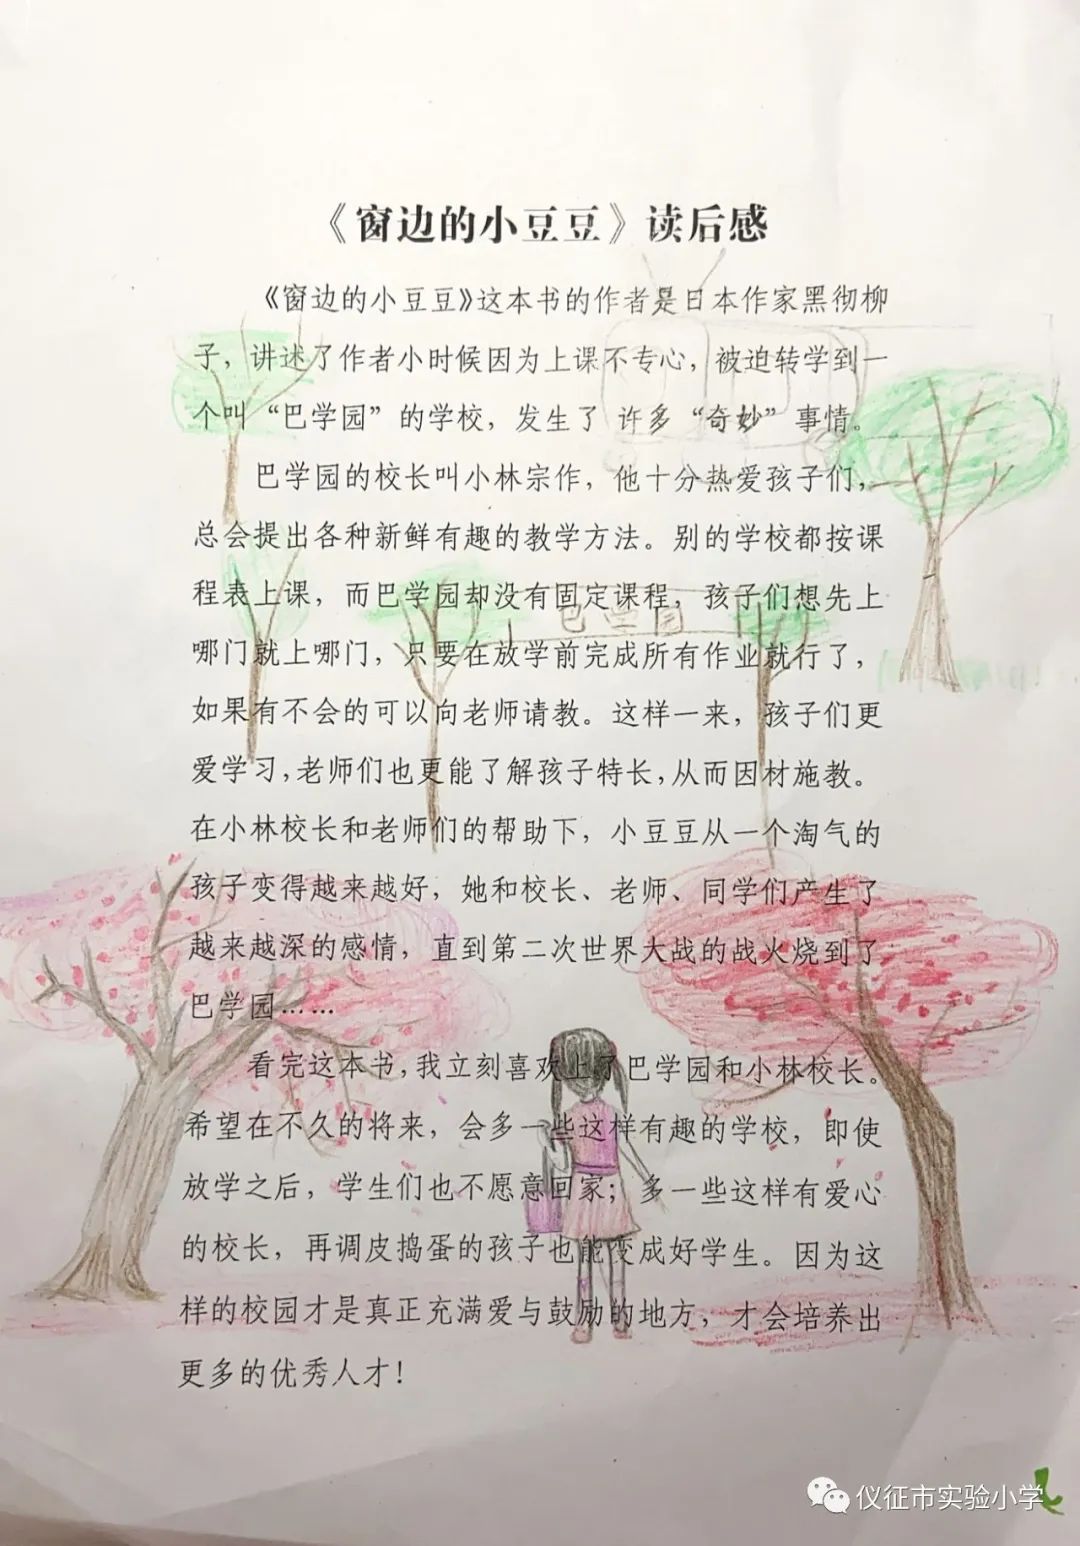 《窗边的小豆豆》读后感
《窗边的小豆豆》这本书的作者是日本作家黑彻柳
子，讲述了作者小时候因为上课不专心，被迫转学到一
个叫“巴学园”的学校，发生了 许多“奇妙”事情。
巴学园的校长叫小林宗作，他十分热爱孩子们，
总会提出各种新鲜有趣的教学方法。别的学校都按课
程表上课，而巴学园却没有固定课程，孩子们想先上
巴学园
哪门就上哪门，只要在放学前完成所有作业就行了，
如果有不会的可以向老师请教。这样一来，孩子们更
爱学习，老师们也更能了解孩子特长，从而因材施教。
在小林校长和老师们的帮助下，小豆豆从一个淘气的
孩子变得越来越好，她和校长、老师、同学们产生了
越来越深的感情，直到第二次世界大战的战火烧到了
巴学园……
看完这本书，我立刻喜欢上了巴学园和小林校长。
希望在不久的将来，会多一些这样有趣的学校，即使
放学之后，学生们也不愿意回家；多一些这样有爱心
的校长，再调皮捣蛋的孩子也能变成好学生。因为这
样的校园才是真正充满爱与鼓励的地方，才会培养出
更多的优秀人才！
仪征市实验小学